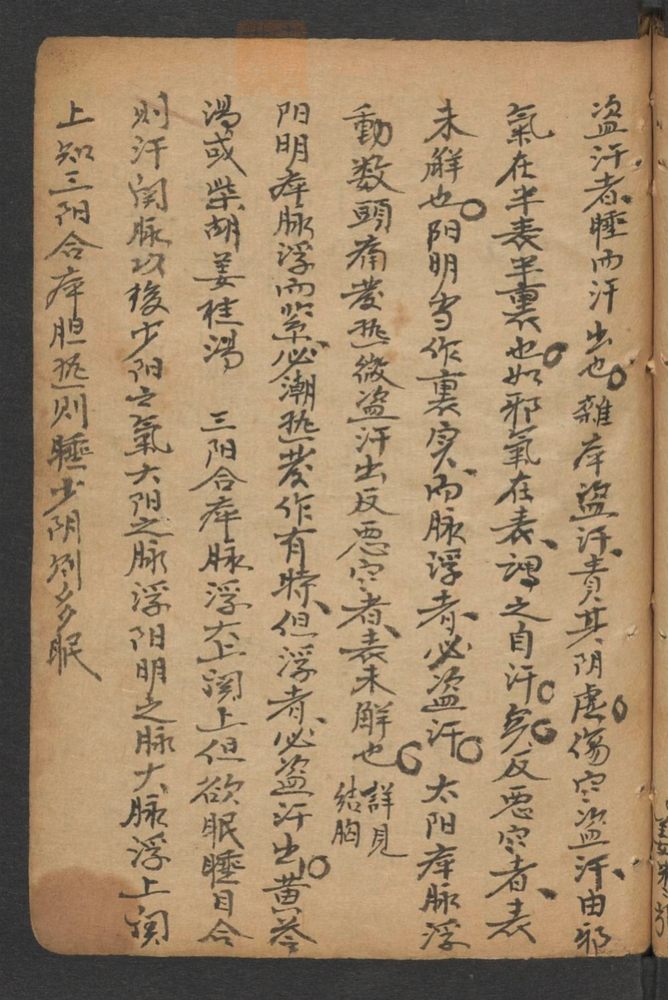 盗汗者、睡而汗出也。雜疾盗汗、責其阴虚。傷寒盗汗、由邪
氣在半表半裏也。如邪氣在表、謂之自汗。反惡寒者、表
未解也。阳明当作裏实、而脉浮者、必盗汗。太阳病脉浮
動数頭痛發热微盗汗出反惡寒者、表未解也。詳見結胸
阳明病脉浮而紧、必潮热發作有時、但浮者、必盗汗出。黄芩
湯或柴胡姜桂湯 三阳合病脉浮大上関上但欲眠睡目合
則汗関脉以後少阳之氣太阳之脉浮阳明之脉大脉浮上関
上知三阳合病胆热則睡少阴則多眠